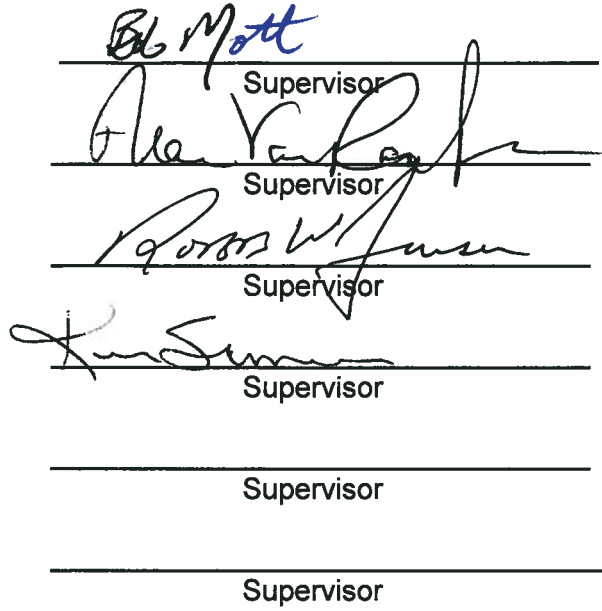 Bob Mott
Supervisor
Alan Van
Supervisor
W. Jensen
Supervisor
Supervisor
Supervisor
Supervisor